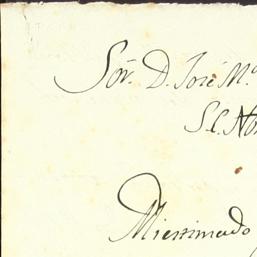 Sōr. D. José Mª
S.C. No
Miestimado